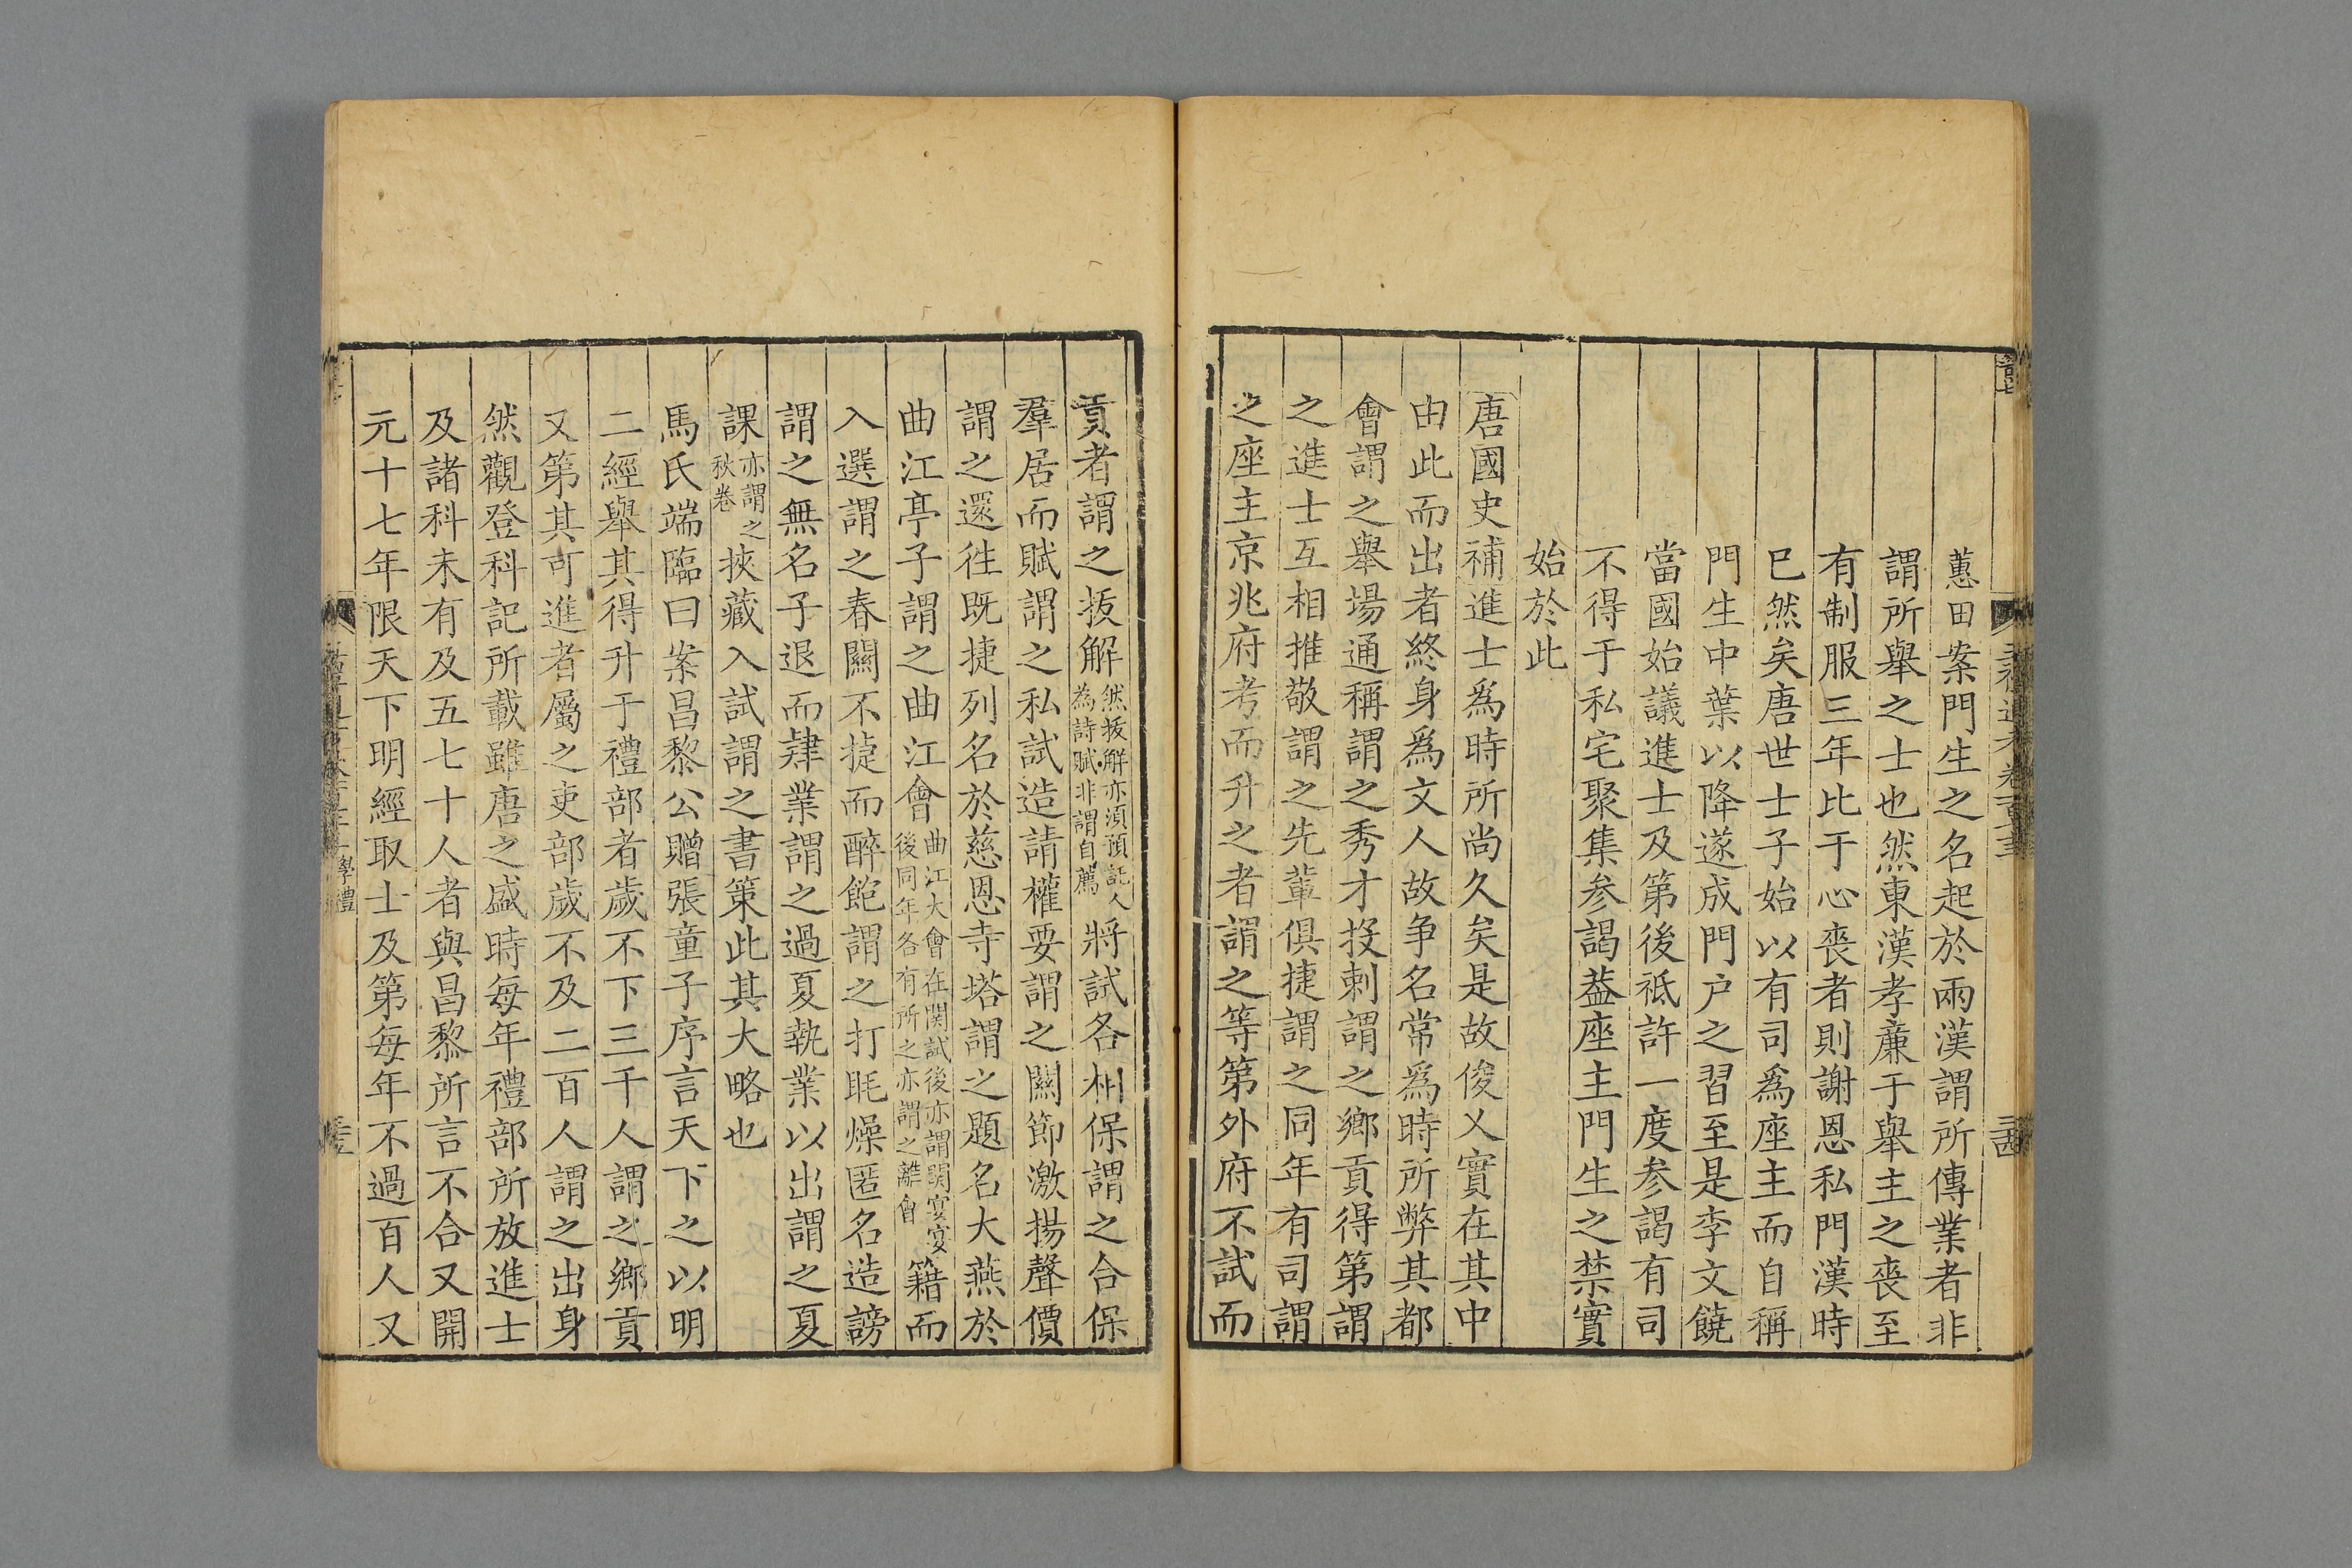 蕙田案門生之名起於兩漢謂所傳業者非
謂所舉之士也然東漢孝廉于舉主之喪至
有制服三年比于心喪者則謝恩私門漢時
已然矣唐世士子始以有司爲座主而自稱
門生中葉以降遂成門户之習至是李文饒
當國始議進士及第後祗許一度参謁有司
不得于私宅聚集参謁葢座主門生之禁實
始於此
唐國史補進士爲時所尚久矣是故俊乂實在其中
由此而出者終身爲文人故争名常爲時所弊其都
會謂之舉場通稱謂之秀才投刺謂之鄉貢得第謂
之進士互相推敬謂之先輩俱捷謂之同年有司謂
之座主京兆府考而升之者謂之等第外府不試而
貢者謂之拔解然拔解亦須預託人為詩賦非謂自薦將試各相保謂之合保
羣居而賦謂之私試造請權要謂之關節激揚聲價
謂之還徃既捷列名於慈恩寺塔謂之題名大燕於
曲江亭子謂之曲江會曲江大會在関試後亦謂関宴宴後同年各有所之亦謂之離會籍而
入選謂之春關不捷而醉飽謂之打毷燥匿名造謗
謂之無名子退而肄業謂之過夏執業以出謂之夏
課亦謂之秋卷挾藏入試謂之書策此其大略也
馬氏端臨曰案昌黎公贈張童子序言天下之以明
二經舉其得升于禮部者歲不下三千人謂之鄉貢
又第其可進者屬之吏部歲不及二百人謂之出身
然觀登科記所載雖唐之盛時每年禮部所放進士
及諸科未有及五七十人者與昌黎所言不合又開
元十七年限天下明經取士及第每年不過百人又
學禮